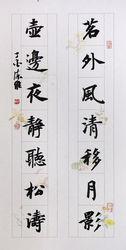 茗外風清移月影
壺邊夜靜聽松濤